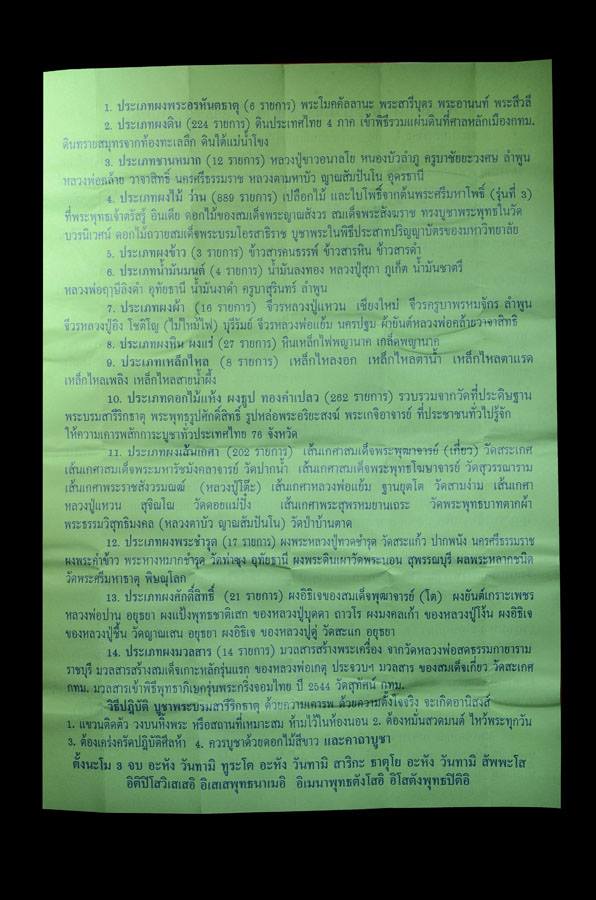 1. ประเภทผงพระอรหันตธาตุ (6 รายการ) พระโมคคัลลานะ พระสารีบุตร พระอานนท์ พระสีวลี
2. ประเภทผงดิน (224 รายการ) ดินประเทศไทย 4 ภาค เข้าพิธีรวมแผ่นดินที่ศาลหลักเมืองกทม.
ดินทรายสมุทรจากท้องทะเลลึก ดินใต้แม่น้ำโขง
3. ประเภทชานหมาก (12 รายการ) หลวงปู่ขาวอนาลโย หนองบัวลำภู ครูบาชัยยะวงศษ ลำพูน
หลวงพ่อคล้าย วาจาสิทธิ์ นครศรีธรรมราช หลวงตามหาบัว ญาณสัมปันโน อุดรธานี
4. ประเภทผงไม้ ว่าน (889 รายการ) เปลือกไม้ และใบโพธิ์จากต้นพระศรีมหาโพธิ์ (รุ่นที่ 3)
ที่พระพุทธเจ้าตรัสรู้ อินเดีย ดอกไม้ของสมเด็จพระญาณสังวร สมเด็จพระสังฆราช ทรงบูชาพระพุทธในวัด
บวรนิเวศน์ ดอกไม้ถวายสมเด็จพระบรมโอรสาธิราช บูชาพระในพิธีประสาทปริญญาบัตรของมหาวิทยาลัย
5. ประเภทผงข้าว (3 รายการ) ข้าวสารคนธรรพ์ ข้าวสารหิน ข้าวสารดำ
6. ประเภทน้ำมันมนต์ (4 รายการ) น้ำมันลงทอง หลวงปู่สุภา ภูเก็ต น้ำมันชาตรี
หลวงพ่อฤๅษีลิงดำ อุทัยธานี น้ำมันงาดำ ครูบาสุรินทร์ ลำพูน
7. ประเภทผงผ้า (16 รายการ) จีวรหลวงปู่แหวน เชียงใหม่ จีวรครูบาพรหมจักร ลำพูน
จีวรหลวงปู่อิง โชติโญ (ไม่ไหม้ไฟ) บุรีรัมย์ จีวรหลวงพ่อแย้ม นครปฐม ผ้ายันต์หลวงพ่อคล้ายวาจาสิทธิ
8. ประเภทผงหิน ผงแร่ (27 รายการ) หินเหล็กไฟพญานาค เกล็ดพญานาค
9. ประเภทเหล็กไหล (8 รายการ) เหล็กไหลงอก เหล็กไหลตาน้ำ เหล็กไหลตาแรด
เหล็กไหลเพลิง เหล็กไหลสายน้ำผึ้ง
10. ประเภทดอกไม้แห้ง ผงธูป ทองคำเปลว (262 รายการ) รวบรวมจากวัดที่ประดิษฐาน
พระบรมสารีริกธาตุ พระพุทธรูปศักดิ์สิทธิ์ รูปหล่อพระอริยะสงฆ์ พระเกจิอาจารย์ ที่ประชาชนทั่วไปรู้จัก
ให้ความเคารพสักการะบูชาทั่วประเทศไทย 76 จังหวัด
11. ประเภทผงเส้นเกศา (202 รายการ) เส้นเกศาสมเด็จพระพุฒาจารย์ (เกี่ยว) วัดสระเกศ
เส้นเกศาสมเด็จพระมหารัชมังคลาจารย์ วัดปากน้ำ เส้นเกศาสมเด็จพระพุทธโฆษาจารย์ วัดสุวรรณาราม
เส้นเกศาพระราชสังวรมณฒ์ (หลวงปู่โต๊ะ) เส้นเกศาหลวงพ่อแย้ม ฐานยุตโต วัดสามง่าม เส้นเกศา
หลวงปู่แหวน สุจิณโณ วัดดอยแม่ปั๋ง เส้นเกศาพระสุพรหมยานเถระ วัดพระพุทธบาทตากผ้า
พระธรรมวิสุทธิมงคล (หลวงตาบัว ญาณสัมปันโน) วัดป่าบ้านตาด
12. ประเภทผงพระชำรุด (17 รายการ) ผงพระหลวงปู่ทวดชำรุด วัดสระแก้ว ปากพนัง นครศรีธรรมราช
ผงพระคำข้าว พระหางหมากชำรุด วัดท่าซุง อุทัยธานี ผงพระดินเผาวัดพระนอน สุพรรณบุรี ผลพระหลากชนิด
วัดพระศรีมหาธาตุ พิษณุโลก
13. ประเภทผงศักดิ์สิทธิ์ (21 รายการ) ผงอิธิเจของสมเด็จพุฒาจารย์ (โต) ผงยันต์เกราะเพชร
หลวงพ่อปาน อยุธยา ผงแป้งพุทธชาติเสก ของหลวงปู่บุดดา ถาวโร ผงมงคลเก้า ของหลวงปู่โง้น ผงอิธิเจ
ของหลวงปู่ชื้น วัดญาณเสน อยุธยา ผงอิธิเจ ของหลวงปู่ดู่ วัดสะแก อยุธยา
14. ประเภทผงมวลสาร (14 รายการ) มวลสารสร้างพระเครื่อง จากวัดหลวงพ่อสดธรรมกายาราม
ราชบุรี มวลสารสร้างสมเด็จเกาะหลักรุ่นแรก ของหลวงพ่อเกตุ ประจวบฯ มวลสาร ของสมเด็จเกี่ยว วัดสะเกศ
กทม. มวลสารเข้าพิธีพุทธาภิเษกรุ่นพระกริ่งจอมไทย ปี 2544 วัดสุทัศน์ กทม.
วิธีปฏิบัติ บูชาพระบรมสารีริกธาตุ ด้วยความเคารพ ด้วยความตั้งใจจริง จะเกิดอานิสงส์
1. แขวนติดตัว วงบนหิ้งพระ หรือสถานที่เหมาะสม ห้ามไว้ในห้องนอน 2. ต้องหมั่นสวดมนต์ ไหว้พระทุกวัน
3. ต้องเคร่งครัดปฏิบัติศีลห้า 4. ควรบูชาด้วยดอกไม้สีขาว และคาถาบูชา
ตั้งนะโม 3 จบ อะหัง วันทามิ ทูระโต อะหัง วันทามิ สาริกะ ธาตุโย อะหัง วันทามิ สัพพะโส
อิติปิโสวิเสเสอิ อิเสเสพุทธนาเมอิ อิเมนาพุทธตังโสอิ อิโสตังพุทธปิติอิ